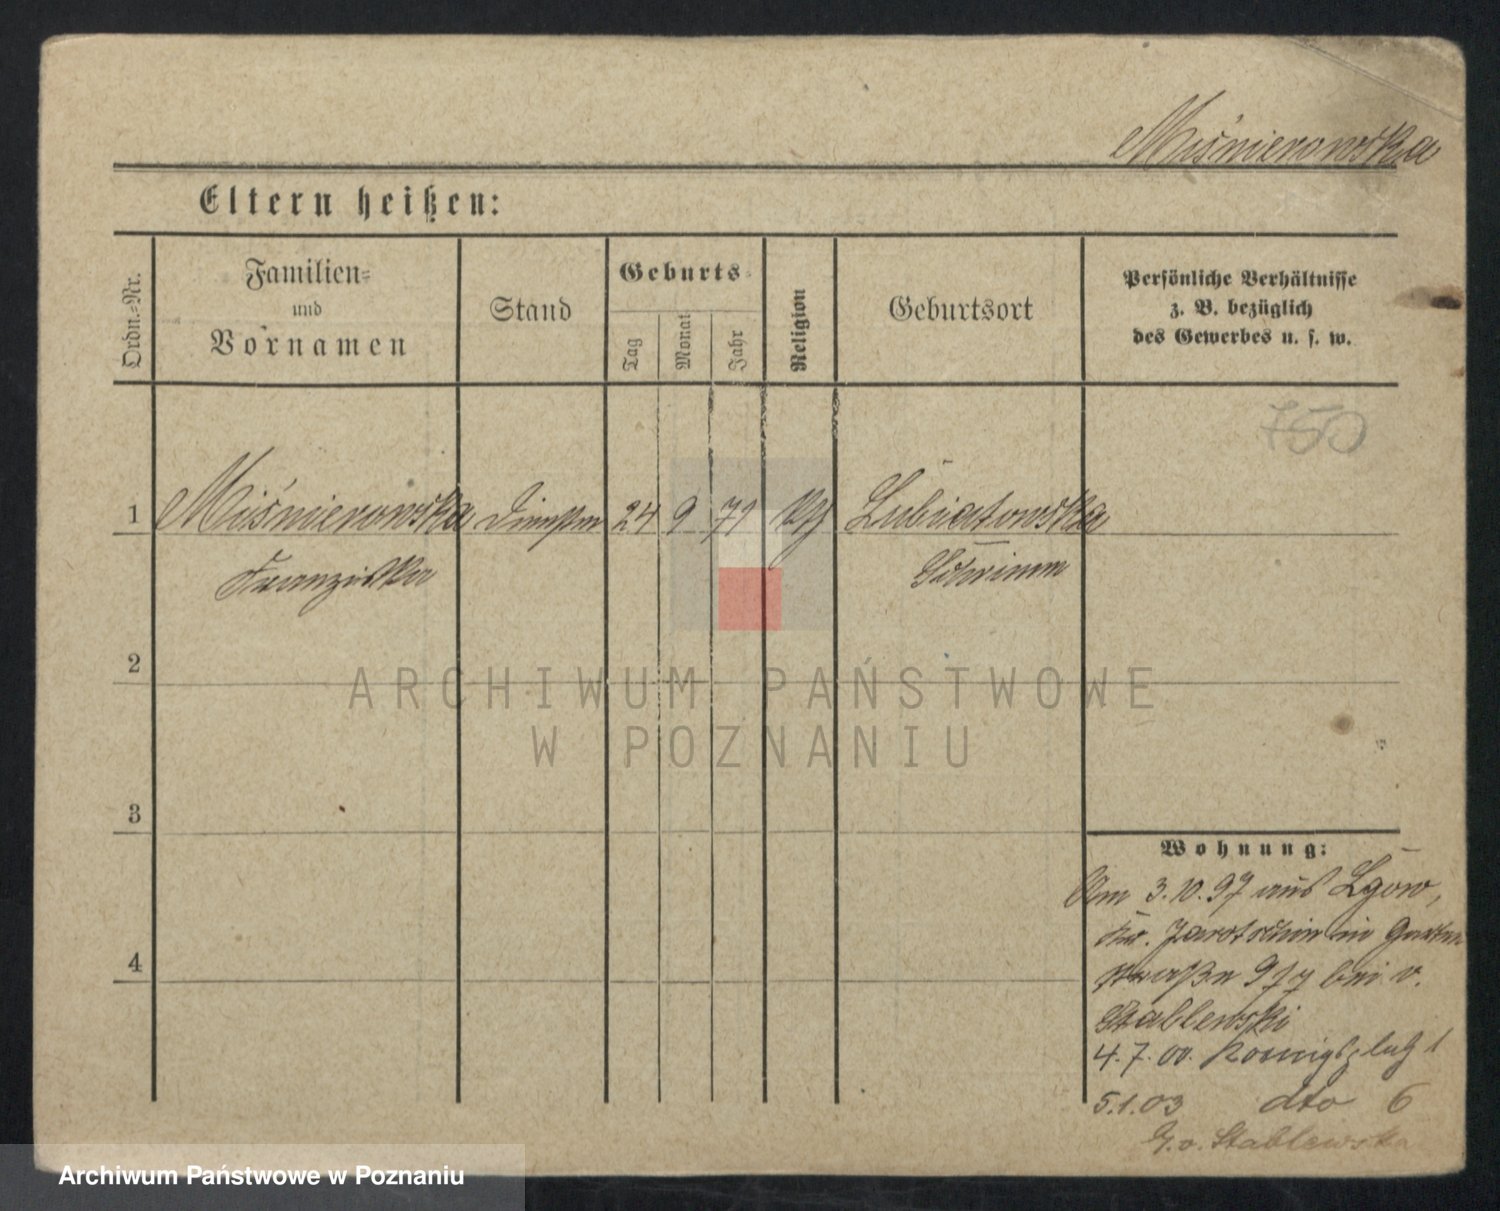 Miśnierowska
Eltern heißen:
Ordn.=Nr.
Familien=
und
Vornamen
Stand
Geburts=
Tag
Monat
Jahr
Religion
Geburtsort
Persönliche Verhältnisse
z. B. bezüglich
des Gewerbes u. s. w.
750
1 Miśnierowska 24 9 71 Lubiatowska
Franziska Schrimm
2
3
4
Wohnung:
Am 3.10.97 aus Lgow,
Kr. Jarotschin in Garten
straße bei v.
Stablewski
4.7.00. Koenigsplatz 1
5.1.03 dto 6
v. Stablewska
ARCHIWUM PAŃSTWOWE
W POZNANIU
Archiwum Państwowe w Poznaniu